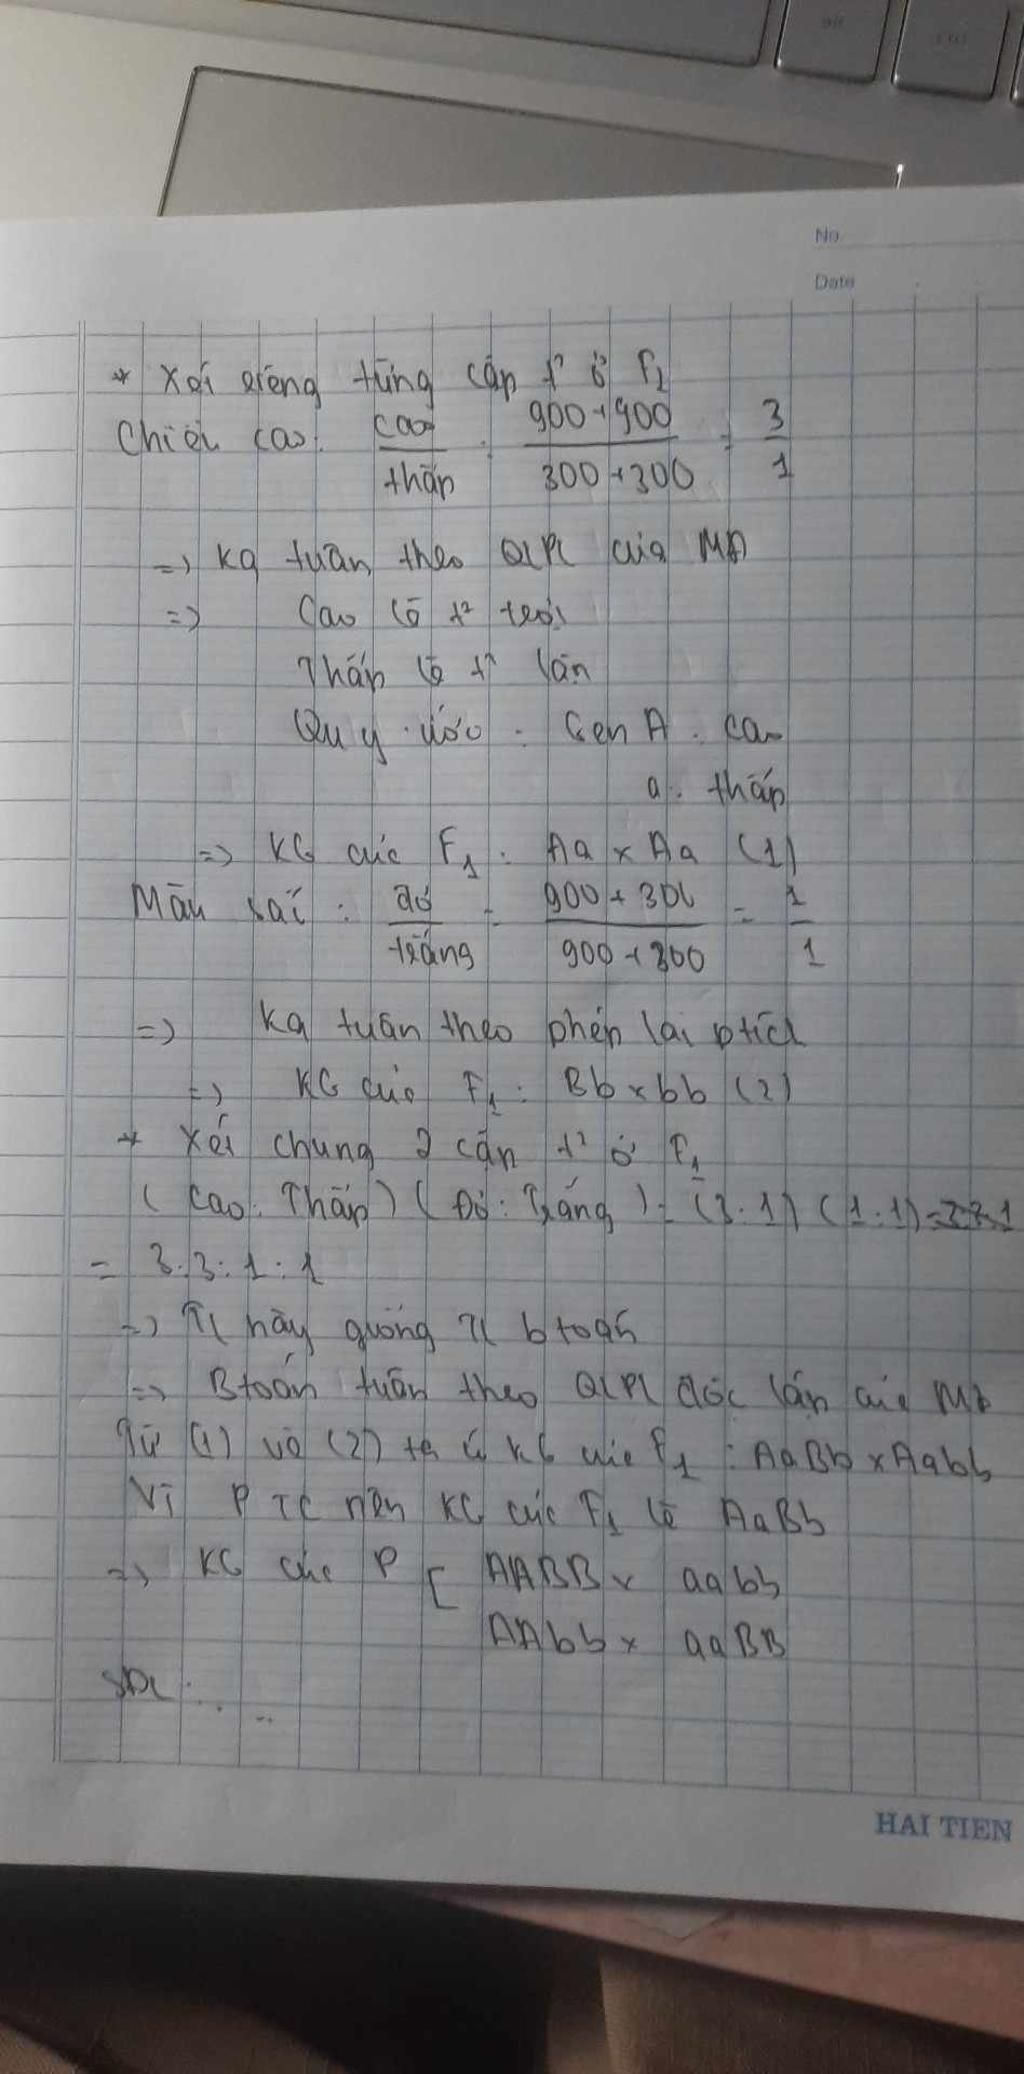 No.
Date
* Xét riêng từng cặp t² ở F2
Chiều cao: cao/thấp = 900+900/300+300 = 3/1
=> KQ tuân theo QLPL của MĐ
=> Cao là t² trội
Thấp là t² lặn
Quy ước: Gen A: cao
a: thấp
=> KG của F1: Aa x Aa (1)
Màu sắc: đỏ/trắng = 900+300/900+300 = 1/1
=> KQ tuân theo phép lai ptích
=> KG của F1: Bb x bb (2)
* Xét chung 2 cặp t² ở F1
(Cao: Thấp) (Đỏ: Trắng) = (3:1) (1:1)
= 3:3:1:1
=> TL này giống TL btoán
=> Btoán tuân theo QLPL độc lập của MĐ
Từ (1) và (2) ta có KG của F1: AaBb x Aabb
Vì P TC nên KG của F1 là AaBb
=> KG của P [ AABB x aabb
AAbb x aaBB
SĐL: ...
HAI TIEN